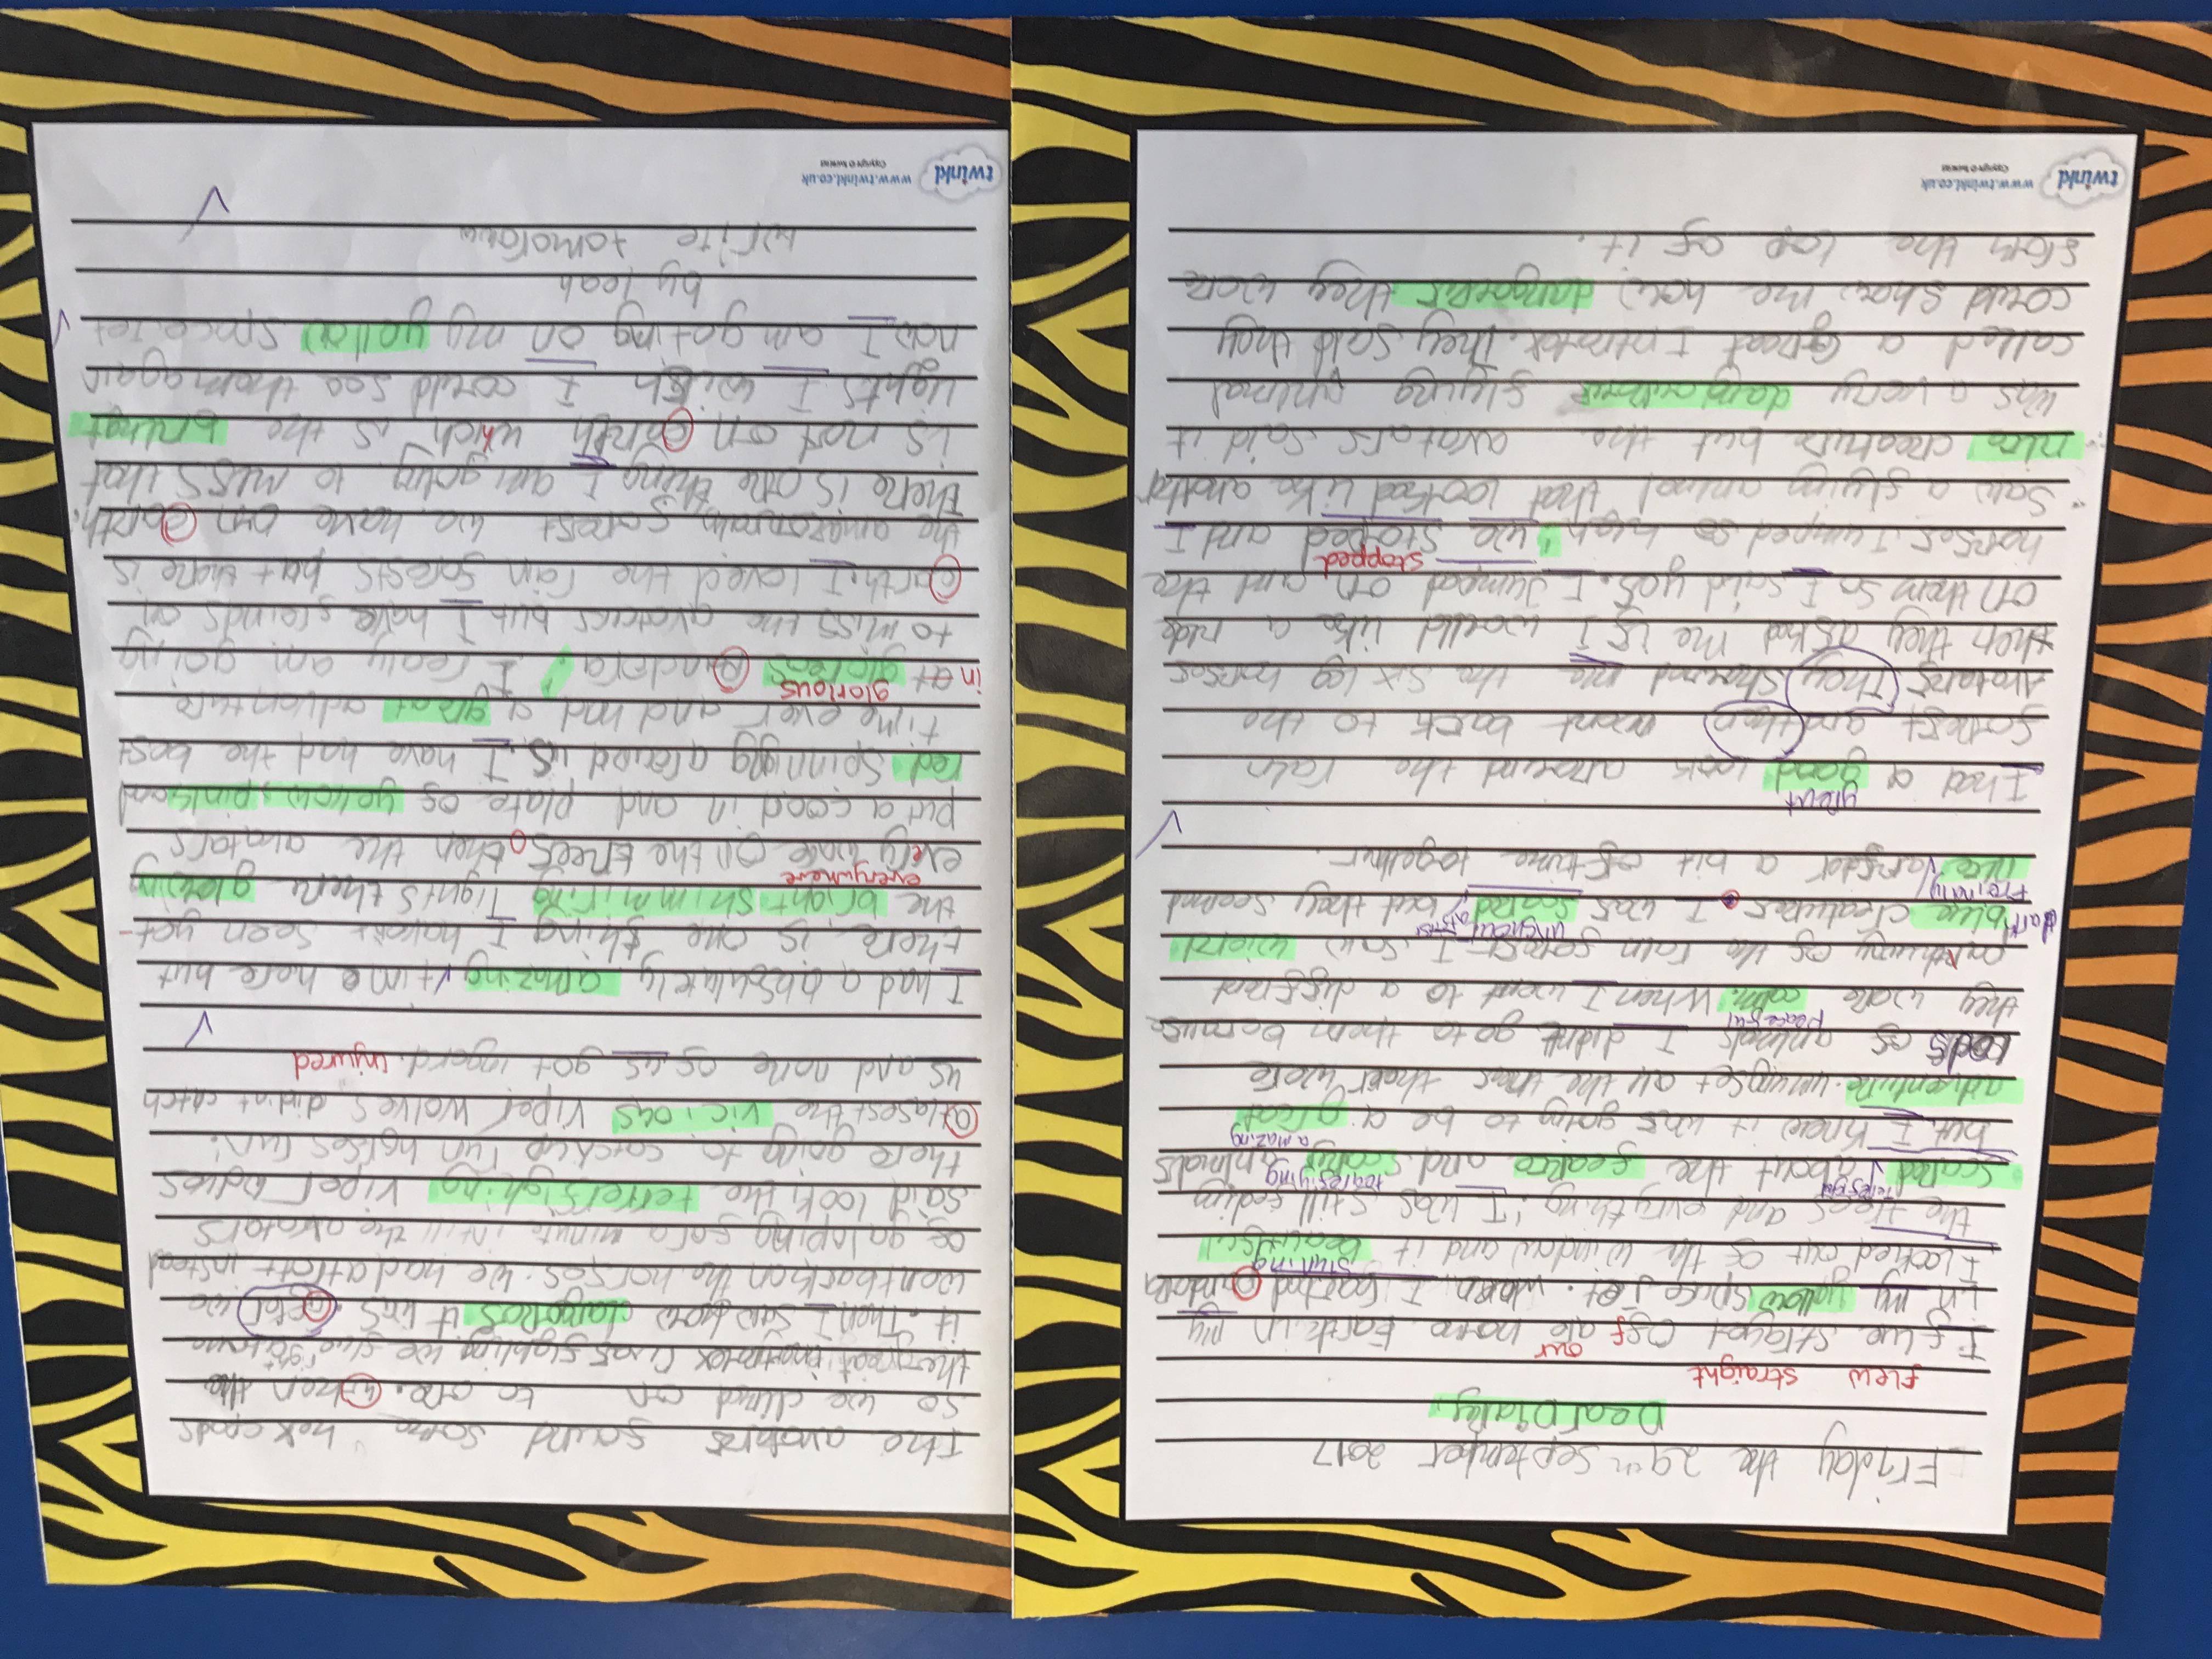 Friday the 29th September 2017
Dear Diary,
flew straight our
If we straget off are home Earth in my
in my yellow space Jet. When I loocked Pandora
stuning
I looked out of the window and it beautiful
the trees and evrything. I was still feeling
terefyed tearefiying
scared about the scarea and scary animals
amazing
but I knew it was going to be a great
adventure. umungst all the trees their were
lods of animals I didnt go to them becaus
peaceful
they were calm. When I went to a diffrent
part of the rain forest I saw wierd
dark blue creatures. I was scared but they seemd
freindly
nice langsar a bit of time together.
great
I had a good look around the rain
forest and then went back to the
Avatars They showed me the six leg horses
then they asked me if I would like a ride
on them so I said yes. I Jumped on and the
stopped
horses Jumped so high, we stoped and I
saw a flying animal that looked like another
nice creature but the avatars said it
was a very dangourour flying animal
called a Great Lenoptryx. They said they
could show me how dangerir they were
from the top of it.
twinkl www.twinkl.co.uk
Copyright © twinkl
The avatars found some hexapods
so we climed on to one. When the
the great leonoptrex was fighting we flew right above
it. Then I saw how dangoros it was. after we
went back on the horses. we had a trott insted
of galoping for a minute intill the avatars
said look the terrerfighing viper wolves
there going to catch up run horses run!
atlasest the vicious viper wolves didint catch
us and none of us got ingerd. injured
I had a absolutely amazing time here but
there is one thing I havent seen yet-
the bright shimmiring lights there glowing
everywhere
every were on the trees. then the avatars
put a cood in and plate of yellow, pink and
red spinning around us. I have had the best
time ever and had a great adventure
glorious
in at glorens Pandora. I realy am going
to miss the avatars but I have freinds on
earth. I loved the rain forests but there is
the amazonrain forest we have on earth.
there is one thing I am going to miss that
is not on earth which is the brihat
lights I wish I could see them again
now I am going on my yellow spaceJet
by leah
write tomoraw
twinkl www.twinkl.co.uk
Copyright © twinkl